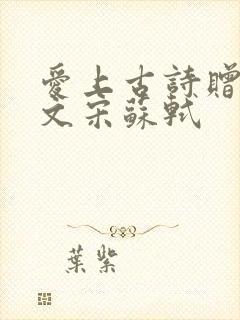 愛上古詩贈
文宋蘇軾
葉紫